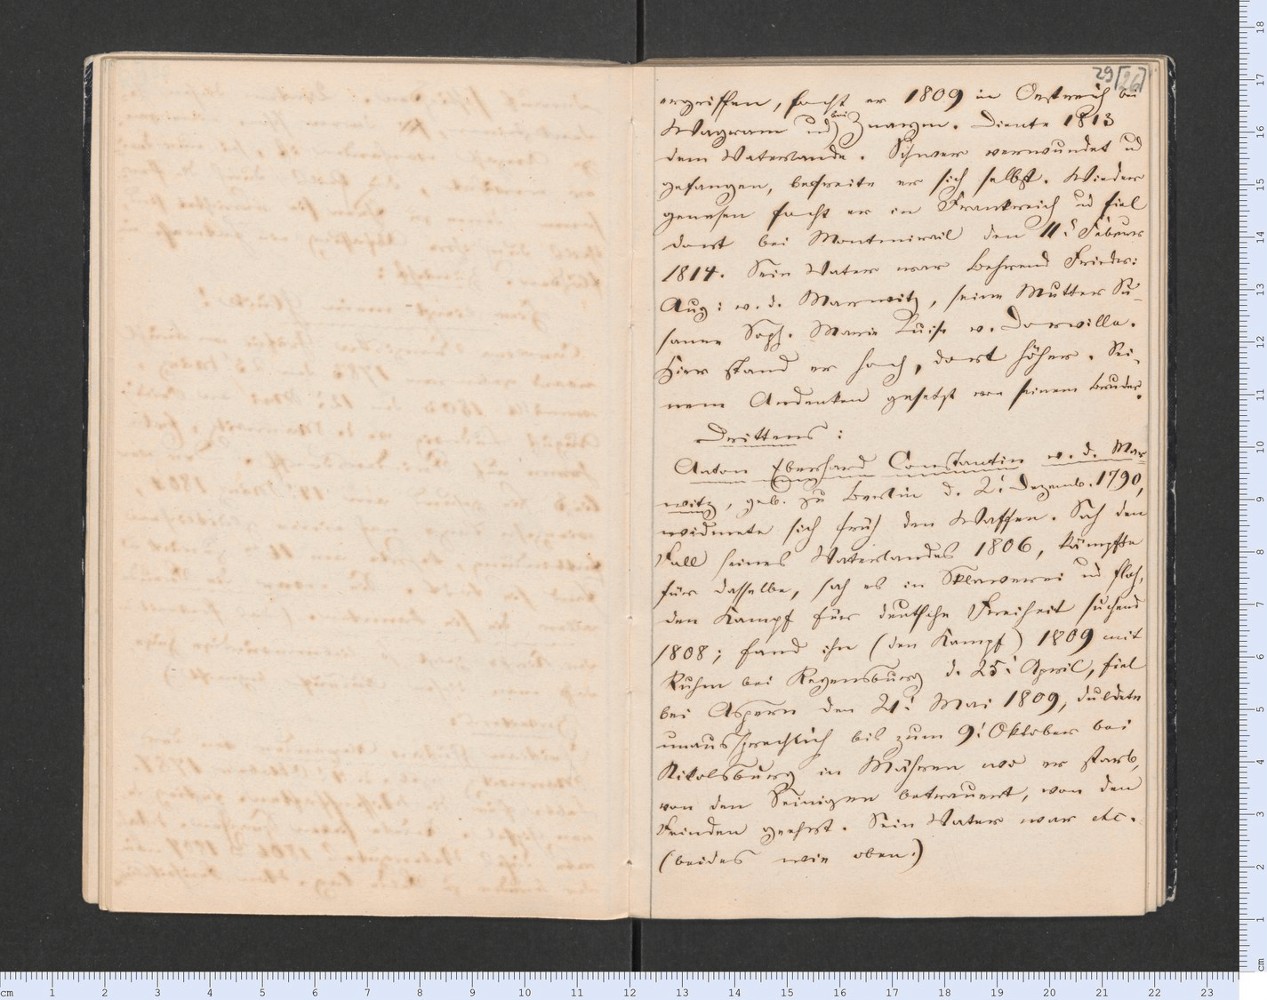 29 [26]
ergriffen, focht er 1809 in Oestreich bei
Wagram und bei Znaym. Diente 1813
dem Vaterlande. Schwer verwundet ud
gefangen, befreite er sich selbst. Wieder
genesen focht er in Frankreich ud fiel
dort bei Montmirail den 11t Februar
1814. Sein Vater war Behrend Friedr:
Aug: v. d. Marwitz, seine Mutter Su-
sanne Soph. Marie Luise v. Dorville.
Hier stand er hoch, dort höher. Sei-
nem Andenken gesetzt von seinem Bruder.
Drittens:
Anton Eberhard Constantin v. d. Mar
witz, geb. zu Berlin d. 2t Dezemb. 1790,
widmete sich früh den Waffen. Sah den
Fall seines Vaterlandes 1806, kämpfte
für dasselbe, sah es in Sklaverei ud floh,
den Kampf für deutsche Freiheit suchend
1808; fand ihn (den Kampf) 1809 mit
Ruhm bei Regensburg d. 25t April, fiel
bei Aspern den 21t Mai 1809, duldete
unaussprechlich bis zum 9t Oktober bei
Nikolsburg in Mähren wo er starb,
von den Seinigen betrauert, von den
Feinden geehrt. Sein Vater war etc.
(beides wie oben.)